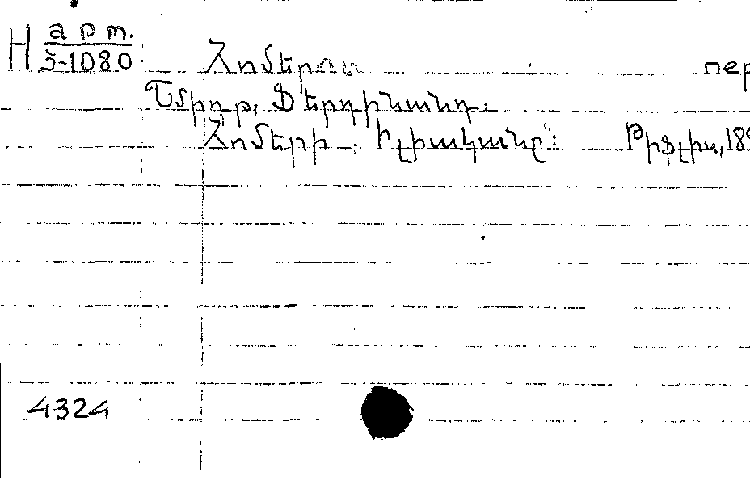 H арт. 3-1080 Հոմերոս пер
Շմիդթ, Ֆերդինանդ։
Հոմերի Իլիականը։ Թիֆլիս, 189
4324